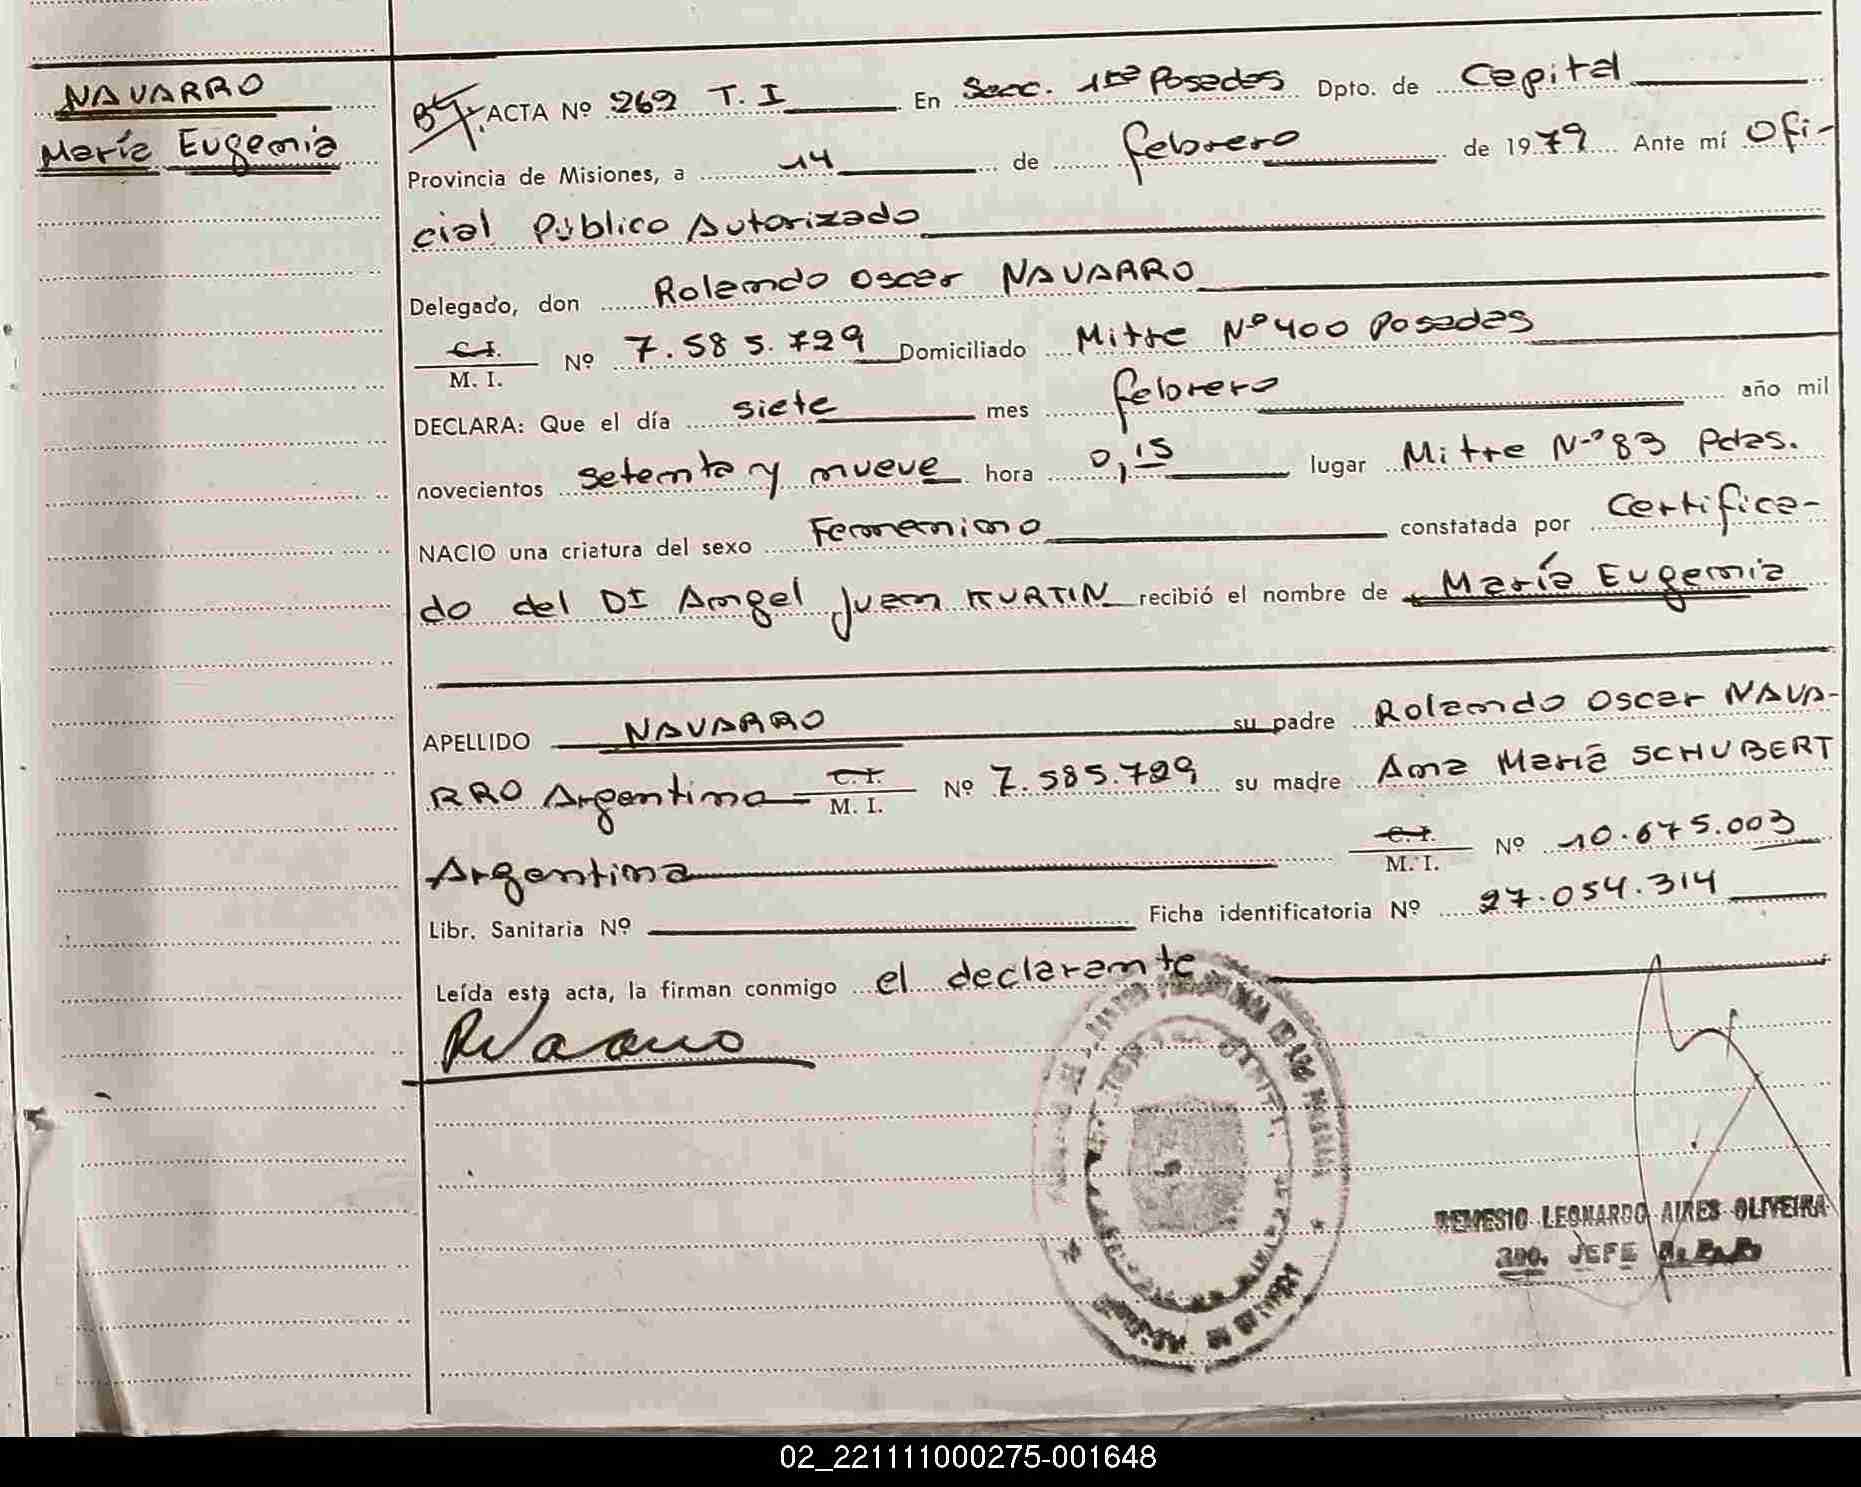 NAVARRO
María Eugenia
ACTA Nº 262 T. I En Secc. 1ra Posadas Dpto. de Capital
Provincia de Misiones, a 14 de febrero de 1979 Ante mí Ofi-
cial Público Autorizado
Delegado, don Rolando Oscar NAVARRO
C.I.
M. I. Nº 7.585.729 Domiciliado Mitre Nº 400 Posadas
DECLARA: Que el día siete mes febrero año mil
novecientos setenta y nueve hora 0,15 lugar Mitre Nº 83 Pdas.
NACIO una criatura del sexo Femenino constatada por Certifica-
do del Dr Angel Juan KURTIN recibió el nombre de María Eugenia
APELLIDO NAVARRO su padre Rolando Oscar NAVA-
RRO Argentino C.I.
M. I. Nº 7.585.729 su madre Ana María SCHUBERT
Argentina C.I.
M. I. Nº 10.675.003
Libr. Sanitaria Nº Ficha identificatoria Nº 27.054.314
Leída esta acta, la firman conmigo el declarante
NEMESIO LEONARDO AIRES OLIVEIRA
2do. JEFE
02_221111000275-001648